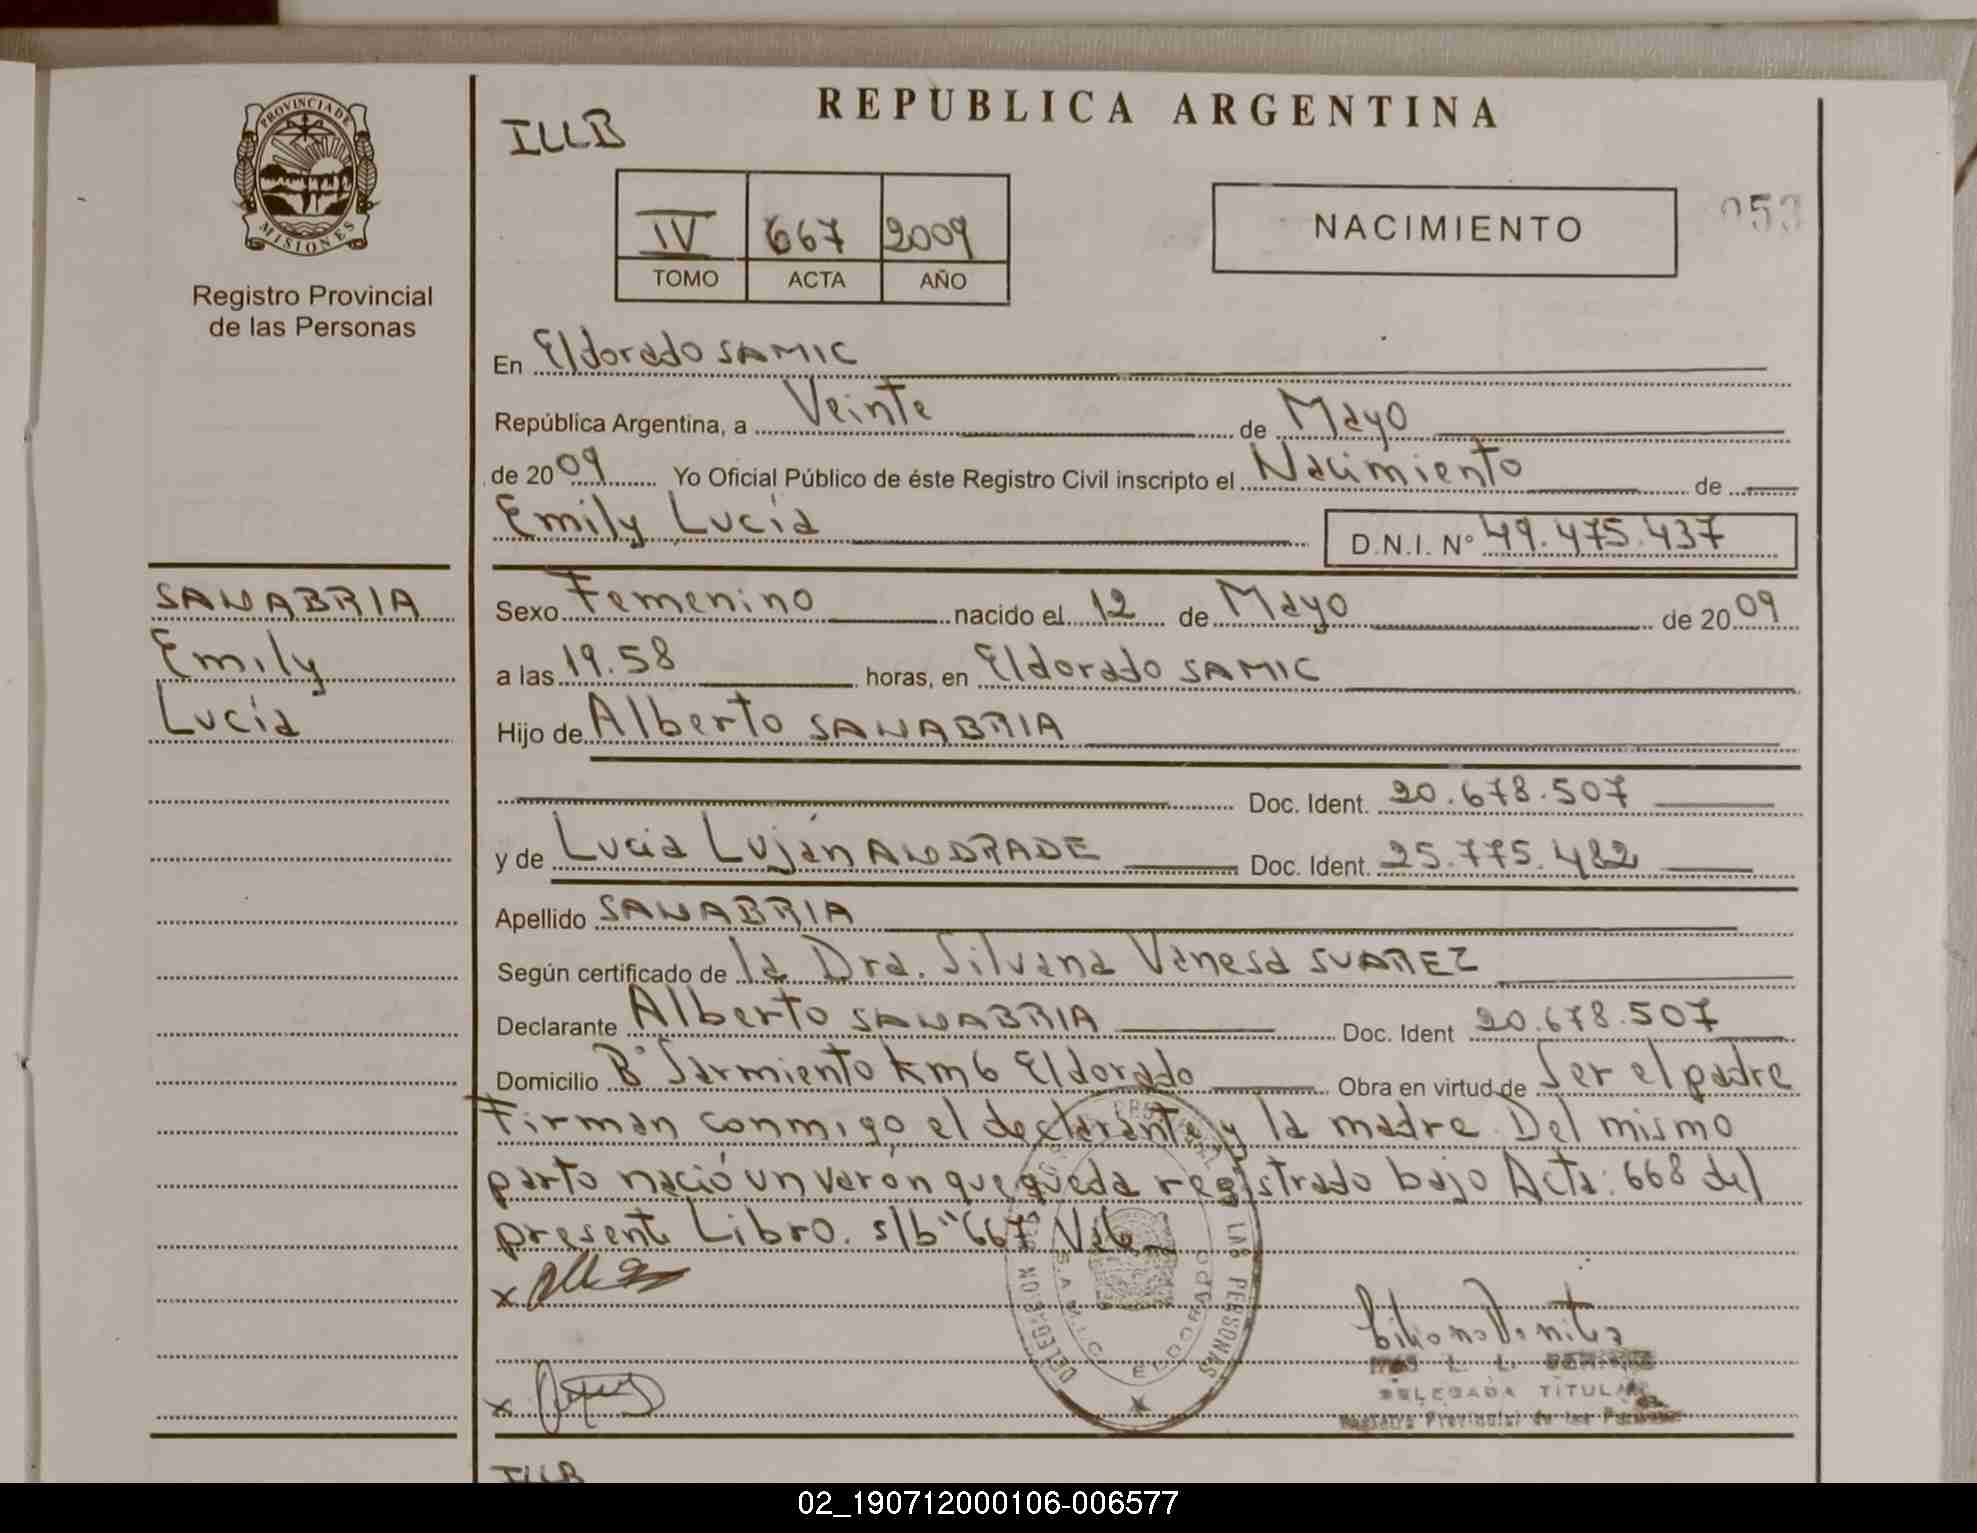 PROVINCIA DE
MISIONES
Registro Provincial
de las Personas
SANABRIA
Emily
Lucía
REPUBLICA ARGENTINA
ILLB
IV 667 2009
TOMO ACTA AÑO
NACIMIENTO
053
En Eldorado SAMIC
República Argentina, a Veinte de Mayo
de 2009 Yo Oficial Público de éste Registro Civil inscripto el Nacimiento de
Emily Lucía D.N.I. Nº 49.475.437
Sexo Femenino nacido el 12 de Mayo de 2009
a las 19.58 horas, en Eldorado SAMIC
Hijo de Alberto SANABRIA
Doc. Ident. 20.678.507
y de Lucia Luján ANDRADE Doc. Ident. 25.775.482
Apellido SANABRIA
Según certificado de la Dra. Silvana Vanesa SUAREZ
Declarante Alberto SANABRIA Doc. Ident 20.678.507
Domicilio Bº Sarmiento km 6 Eldorado Obra en virtud de Ser el padre
Firman conmigo el declarante y la madre. Del mismo
parto nació un varón que queda registrado bajo Acta: 668 del
presente Libro. s/b "667" Vale
DELEGADA TITULAR
Registro Provincial de las
LAS PERSONAS
S.A.M.I.C. ELDORADO
ILLB
02_190712000106-006577